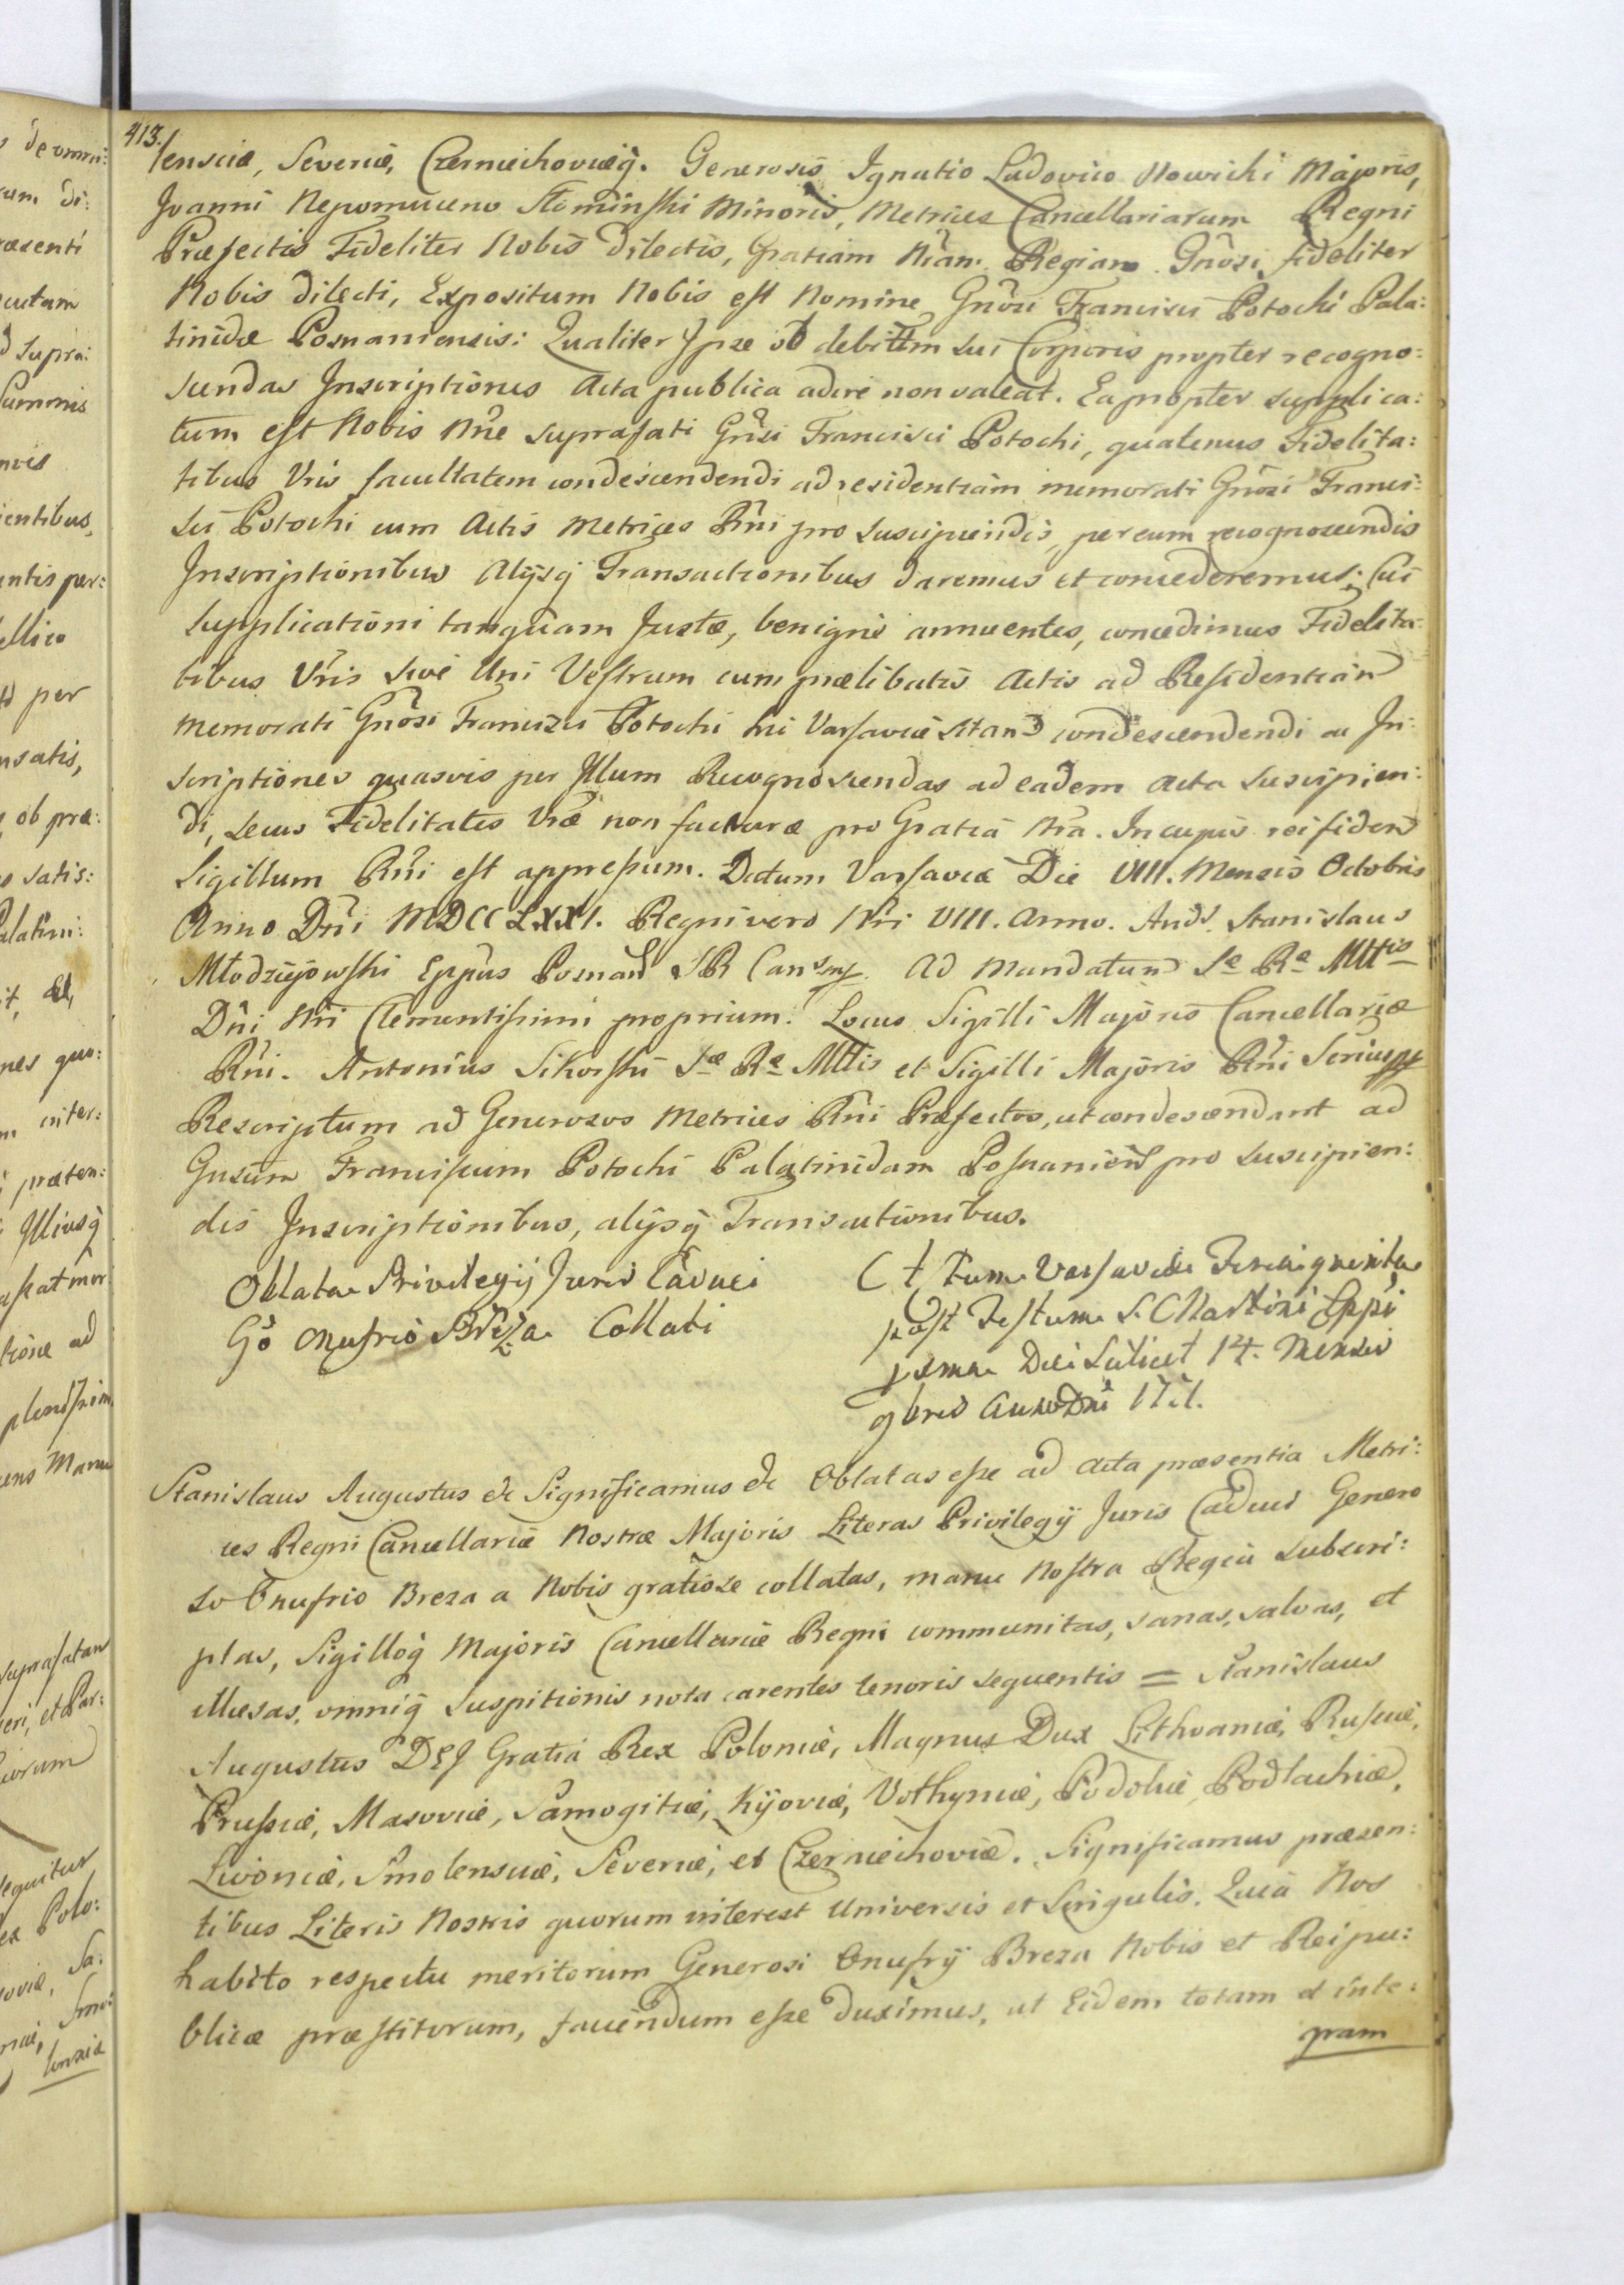 413.
lensciæ, Severiæ, Czerniechoviæq̃. Generosis Ignatio Ludovico Nowicki Majoris,
Joanni Nepomuceno Słominski Minoris, Metrices Cancellariarum Regni
Præfectis Fideliter Nobis dilectis, Gratiam Nr̃am Regiam. Gñosi fideliter
Nobis dilecti, Expositum Nobis est Nomine Gñosi Francisci Potocki Pala:
tinidæ Posnaniensis: Qualiter Ipse ob debilitm̃ sui Corporis propter recogno:
scendas Inscriptiones Acta publica adire non valeat. Eapropter supplica:
tum est Nobis Nñe suprafati Gñsi Francisci Potocki, quatenus Fidelita:
tibus Vr̃is facultatem condescendendi ad residentiam memorati Gñosi Franci:
sci Potocki cum Actis Metrices Rñi pro suscipiendis, per eum recognoscendis
Inscriptionibus Alijsq̃ Transactionibus daremus et concederemus; Cui
supplicationi tanquam Justæ, benigne annuentes, concedimus Fidelita-
tibus Vr̃is sive Uni Vestrum cum prælibatis Actis ad Residentiam
memorati Gñosi Francisci Potocki hic Varsaviæ stand̃ condescendendi ac In:
scriptiones quasvis per Illum Recognoscendas ad eadem Acta suscipien:
di, secus Fidelitates Vr̃æ non facturæ pro Gratia Nr̃a. In cujus rei fidem
Sigillum Rñi est appressum. Datum Varsaviæ Die VIII. Mensis Octobris
Anno Dñi MDCCLXXI. Regni vero Nr̃i VIII. Anno. Andr. Stanislaus
Młodziejowski Eppũs Posnañ S R Canc mp. Ad Mandatum Sæ Ræ Mttis
Dñi Nr̃i Clementissimi proprium. Locus Sigilli Majoris Cancellariæ
Rñi. Antonius Sikorski Sæ Ræ Mttis et Sigilli Majoris Rñi Scrius mp
Rescriptum ad Generosos Metrices Rñi Præfectos, ut condescendant ad
Gnsum Franciscum Potocki Palatinidam Posnanieñ pro suscipien:
dis Inscriptionibus, alijsq̃ Transactionibus.
Oblata Privilegij Juris Caduci
Gõ Onufrio Breza Collati
Ctum Varsaviæ Feria quinta
post Festum S. Martini Eppi
pxma Die Scilicet 14. Mensis
9bris Anno Dñi 1771.
Stanislaus Augustus &c Significamus &c Oblatas esse ad Acta præsentia Metri:
ces Regni Cancellariæ Nostræ Majoris Literas Privilegij Juris Caduci Genero
so Onufrio Breza a Nobis gratiose collatas, manu Nostra Regia subscri:
ptas, Sigilloq̃ Majoris Cancellariæ Regni communitas, sanas, salvas, et
illæsas, omniq̃ suspitionis nota carentes tenoris sequentis = Stanislaus
Augustus DEI Gratia Rex Poloniæ, Magnus Dux Lithvaniæ, Russiæ,
Prussiæ, Masoviæ, Samogitiæ, Kijoviæ, Volhyniæ, Podoliæ, Podlachiæ,
Livoniæ, Smolensciæ, Severiæ, et Czerniechoviæ. Significamus præsen:
tibus Literis Nostris quorum interest Universis et Singulis. Quia Nos
habito respectu meritorum Generosi Onufrij Breza Nobis et Reipu:
blicæ præstitorum, favendum esse duximus, ut Eidem totam et inte:
gram